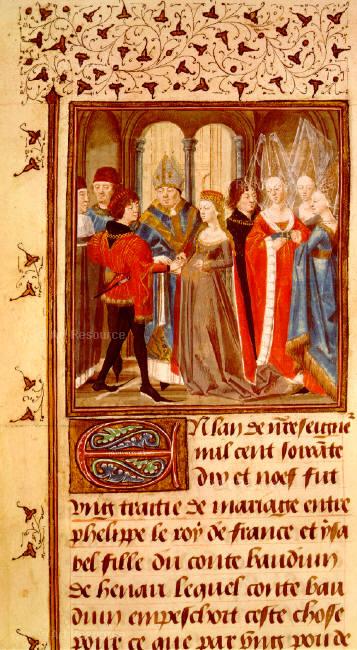 Art Resource
En lan de nre seigneur
mil cent soixante
dix et noef fut
vng traictie de mariage entre
phelippe le roy de france et ysa
bel fille du conte bauduin
de henau lequel conte bau
duin empeschoit ceste chose
pour ce que par vng pou de